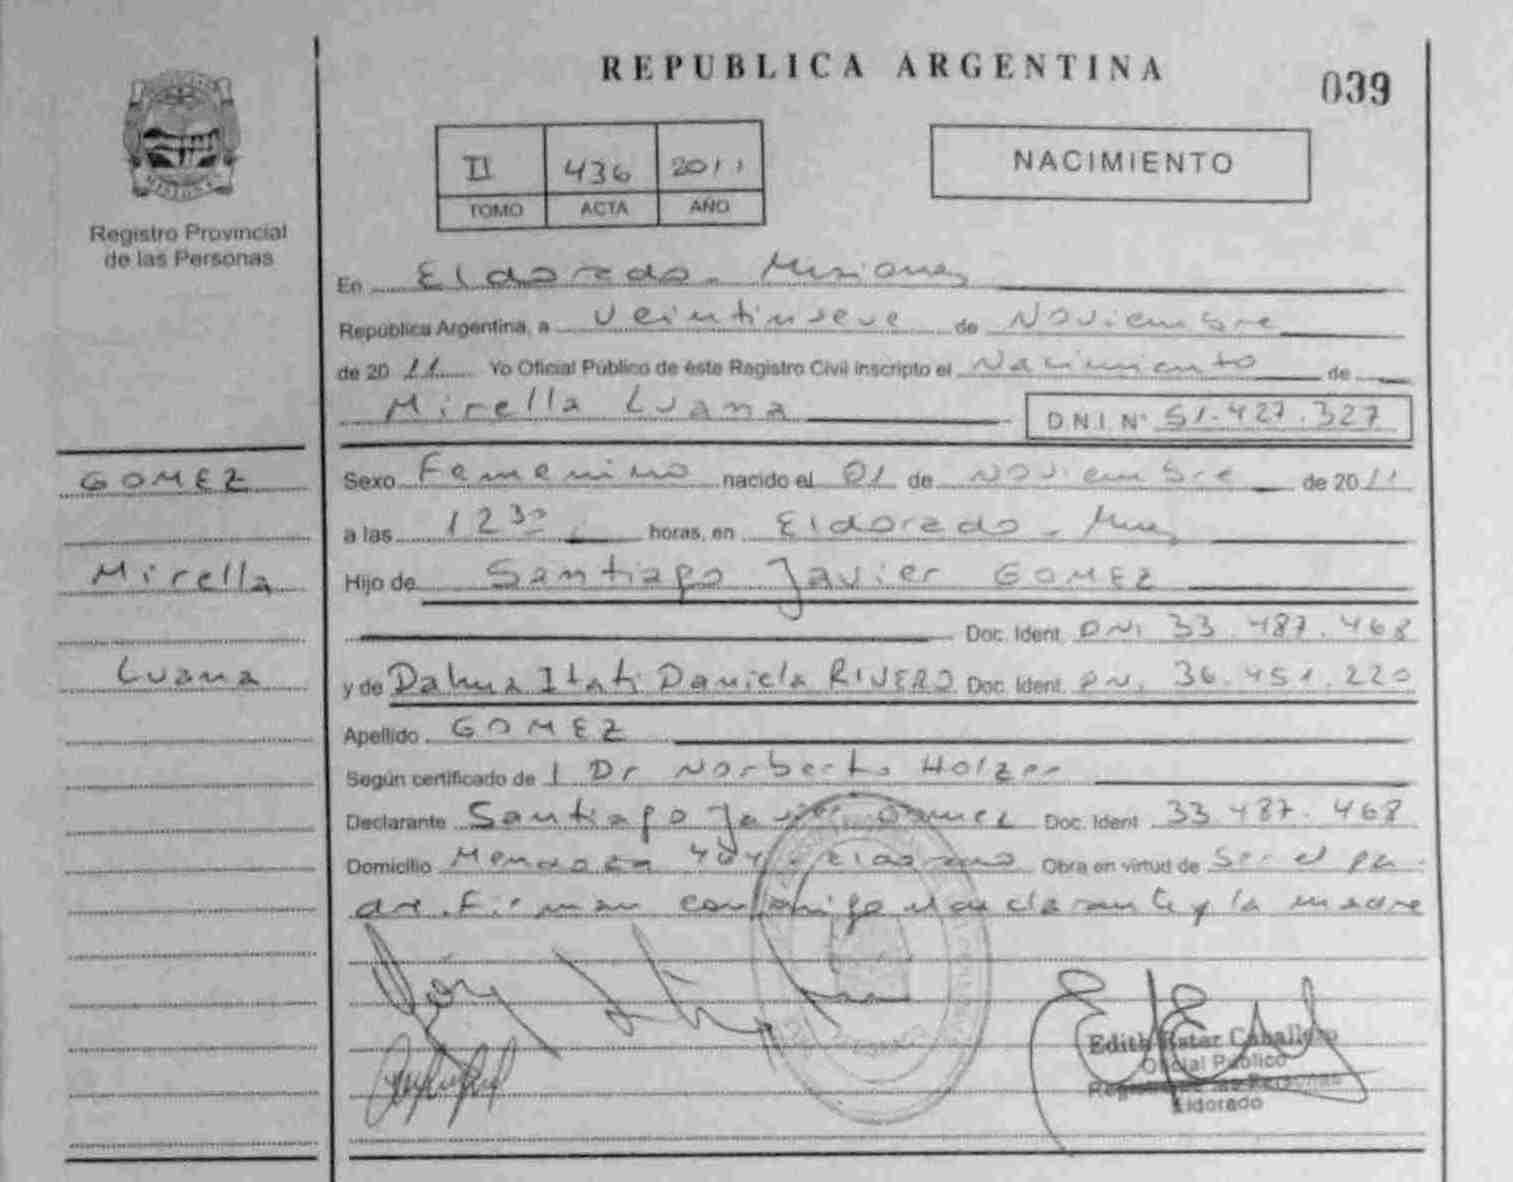 REPUBLICA ARGENTINA
039
II 436 2011
TOMO ACTA AÑO
NACIMIENTO
MISIONES
Registro Provincial
de las Personas
En Eldorado - Misiones
República Argentina, a veintinueve de Noviembre
de 2011 Yo Oficial Público de éste Registro Civil inscripto el Nacimiento de
Mirella Luana
D N I Nº 51.427.327
GOMEZ
Mirella
Luana
Sexo Femenino nacido el 01 de Noviembre de 2011
a las 12 30 horas, en Eldorado - Mnes
Hijo de Santiago Javier GOMEZ
Doc. Ident. DNI 33.487.468
y de Dalma Itati Daniela RIVERO Doc. Ident. DNI 36.451.220
Apellido GOMEZ
Según certificado de l Dr Norberto Holzer
Declarante Santiago Javier Gomez Doc. Ident 33 487.468
Domicilio Mendoza 404 - Eldorado Obra en virtud de Ser el pa-
dre. Firman conmigo el declarante y la madre
Edith Ester Caballero
Oficial Público
Eldorado